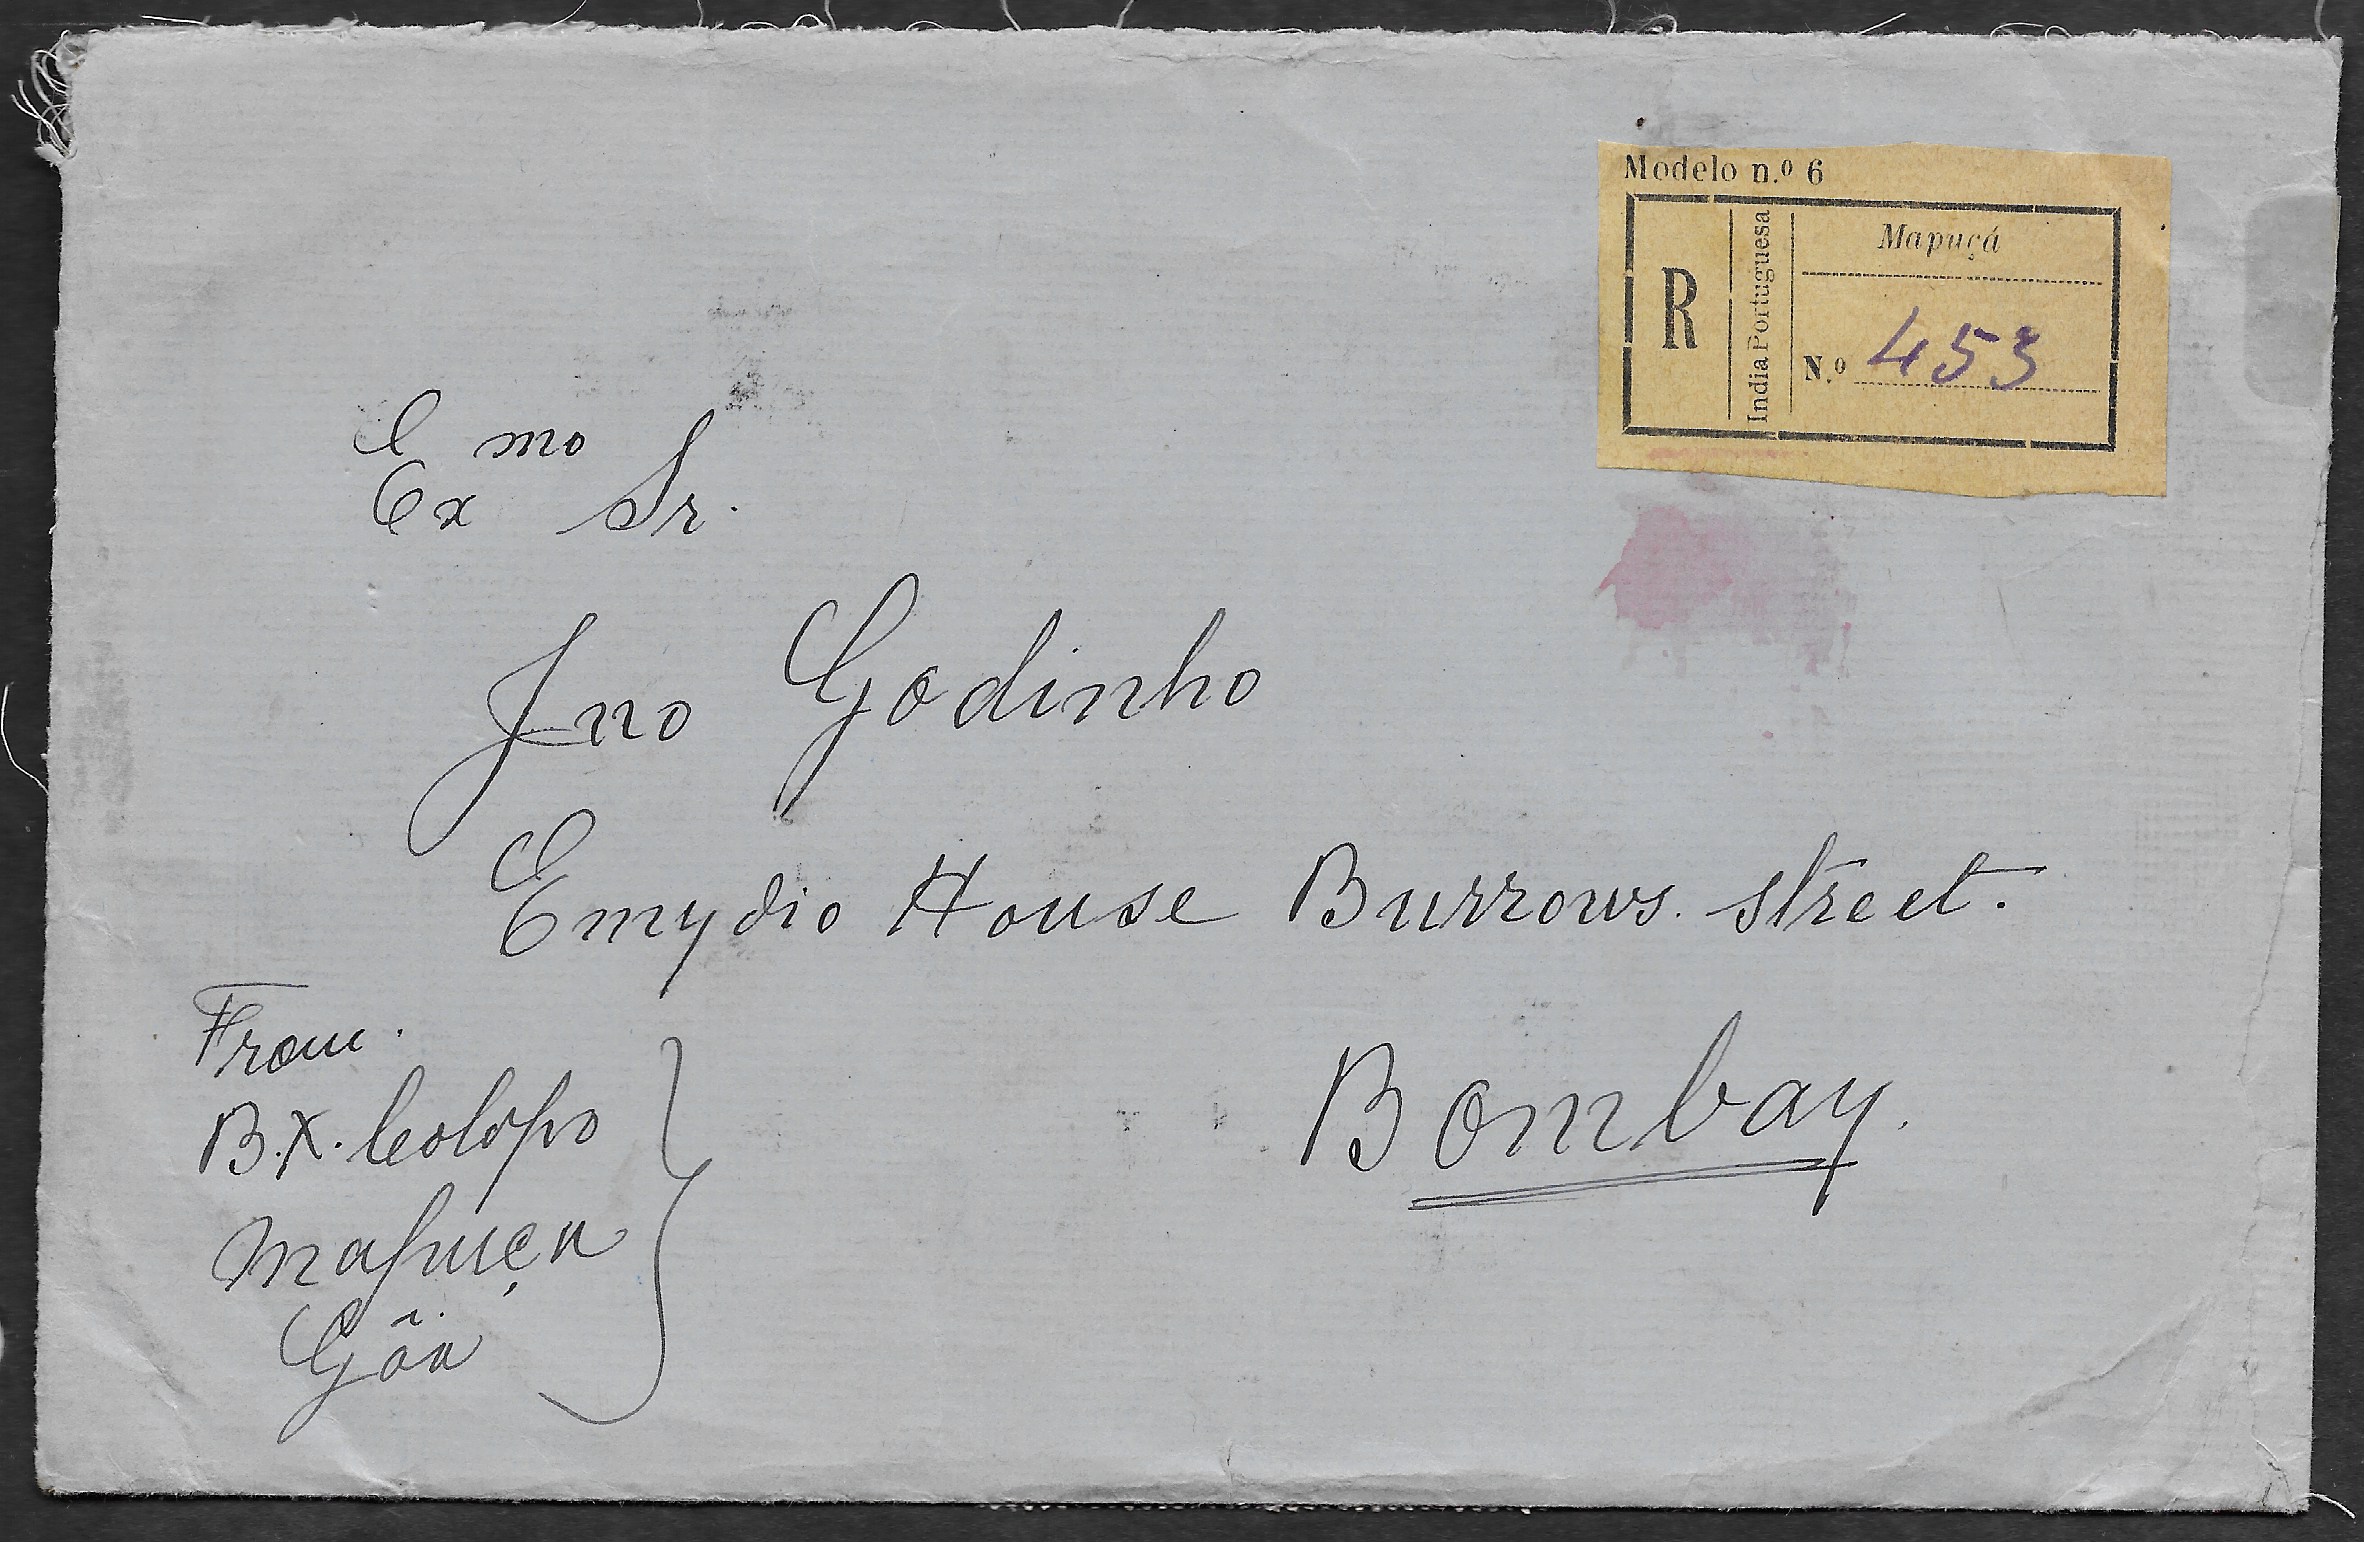 Modelo n.º 6
R
India Portuguesa
Mapuçá
N.º 453
Exmo Sr.
Jno Godinho
Emydio House Burrows. street.
Bombay.
From.
B.X. Colopo
Mapuçá
Gôa